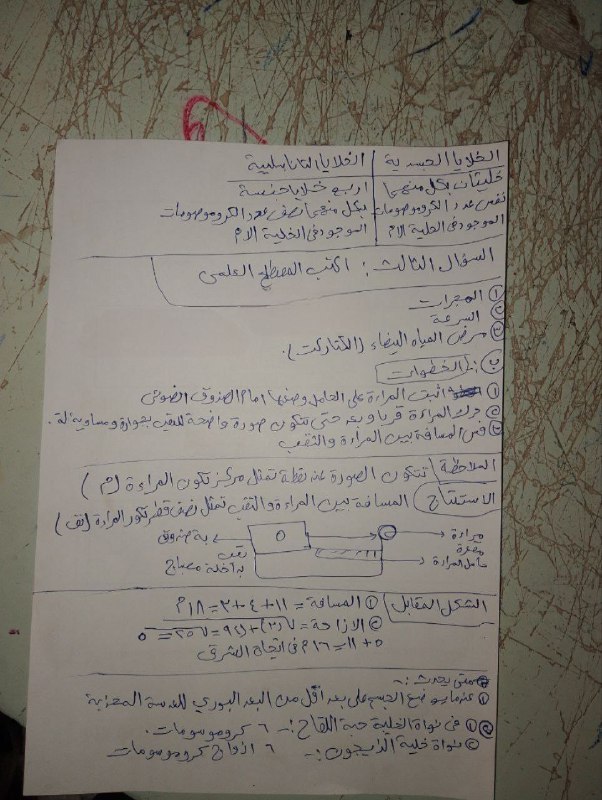 الخلايا الجسدية | الخلايا التناسلية
خليتان بكل منهما | اربع خلايا جنسية
نفس عدد الكروموصومات | بكل منهما نصف عدد الكروموصومات
الموجود فى الخلية الام | الموجود فى الخلية الام
السؤال الثالث : اكتب المصطلح العلمى
① المجرات
② السرعة
③ مرض المياه البيضاء (الكتاركت).
ب :- الخطوات
① اثبت المراءة على الحامل وضعها امام الصندوق الضوئى
② حرك المراءة قربا وبعد حتى تتكون صورة واضحة للثقب بجواره ومساوية له.
③ قس المسافة بين المراءة والثقب
الملاحظة تتكون الصورة عند نقطة تمثل مركز تكون المراءة (م)
الاستنتاج المسافة بين المراءة والثقب تمثل نصف قطر تكور المراءة (نق)
مراءة
مقعرة
حامل المراءة
صندوق به
ثقب
بداخله مصباح
الشكل المقابل
① المسافة = ١١+٤+٣ = ١٨م
② الازاحة = √(٣)²+(٤)² = √٢٥ = ٥
٥+١١ = ١٦م فى اتجاة الشرق
متى يحدث :-
① عندما يوضع الجسم على بعد أقل من البعد البورى للعدسة المحدبة
① فى نواة الخلية حبة اللقاح :- ٦ كروموسومات.
② نواة خلية الزيجون :- ٦ ازواج كروموسومات